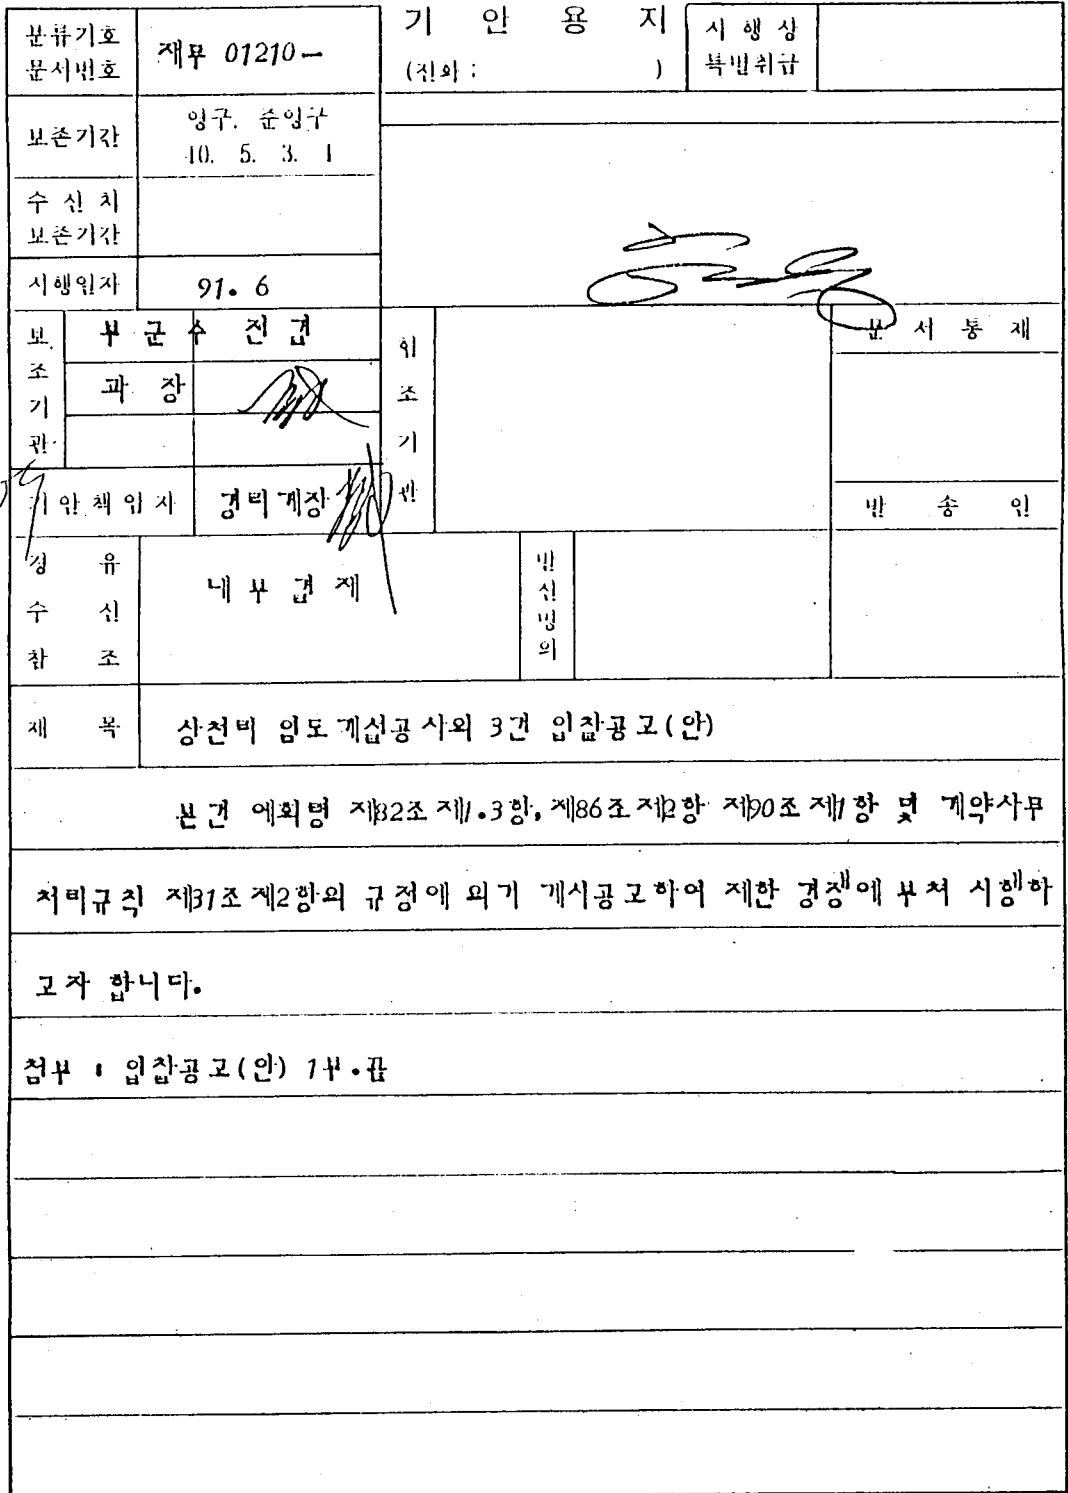 기 안 용 지
분류기호
문서번호
재무 01210-
(전화 : )
시 행 상
특별취급
보존기간
영구. 준영구
10. 5. 3. 1
수 신 처
보존기간
시행일자
91. 6
보조기관
부 군 수 전결
과 장
협조기관
문 서 통 제
기안책임자
경리계장
발 송 인
경 유
수 신
참 조
내 부 결 재
발신명의
제 목
상천리 임도개설공사외 3건 입찰공고(안)
본건 예회령 제82조제1.3항, 제86조제2항 제90조제1항 및 계약사무
처리규칙 제31조제2항의 규정에 의기 게시공고하여 제한 경쟁에 부쳐 시행하
고자 합니다.
첨부 : 입찰공고(안) 1부. 끝